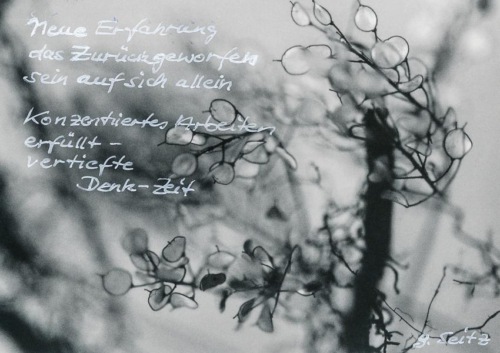 Neue Erfahrung
das Zurückgeworfen
sein auf sich allein
Konzentriertes Arbeiten
erfüllt –
vertiefte
Denk-Zeit
g. Seitz